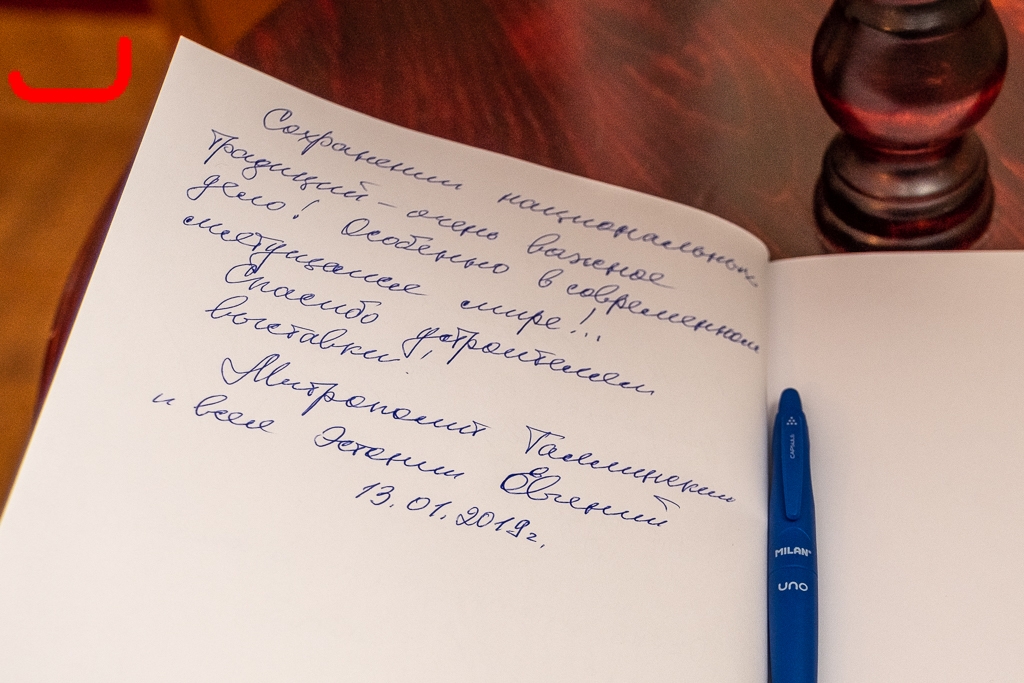 Сохранении национальных
традиций – очень важное
дело! Особенно в современном
мятущемся мире!...
Спасибо устроителям
выставки!
Митрополит Таллинский
и всея Эстонии Евгений
13.01.2019г.
CAPSULE
MILAN
UNO